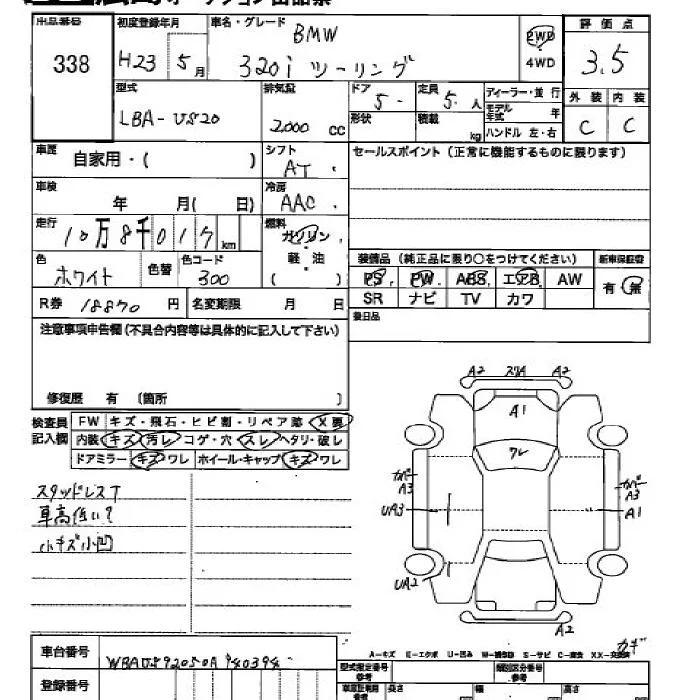 出品番号 初度登録年月 車名・グレード 評価点
338 H23 5月 BMW 2WD 3.5
320i ツーリング 4WD
型式 排気量 ドア 定員 ディーラー・並行 外装 内装
LBA-US20 2,000 cc 5 5人 モデル年式 年 C C
形状 積載 kg ハンドル 左・右
車歴 自家用・( ) シフト AT セールスポイント(正常に機能するものに限ります)
車検 年 月( 日) 冷房 AAC
走行 10万8千017km 燃料 ガソリン
色 ホワイト 色替 色コード 300 軽油 ( ) 装備品(純正品に限り○をつけてください) 新車保証書
PS PW ABS エアB AW 有・無
R券 18870円 名変期限 月 日 SR ナビ TV カワ
注意事項申告欄(不具合内容等は具体的に記入して下さい) 後日品
修復歴 有 (箇所 )
検査員記入欄 FW キズ・飛石・ヒビ割・リペア跡・X要
内装 キズ・汚レ・コゲ・穴・スレ・ヘタリ・破レ
ドアミラー キズ・ワレ ホイール・キャップ キズ・ワレ
スタッドレスT
車高低い?
小キズ小凹
A2 スリA A2
A1
ワレ
カバー A3 カバー A3
UA3 A1
UA2
A2
カギ
A-キズ E-エクボ U-凹み W-補修跡 S-サビ C-腐食 XX-交換済
車台番号 WBAUS92050A940394
登録番号
型式指定番号 参考 類別区分番号 参考
長さ 幅 高さ